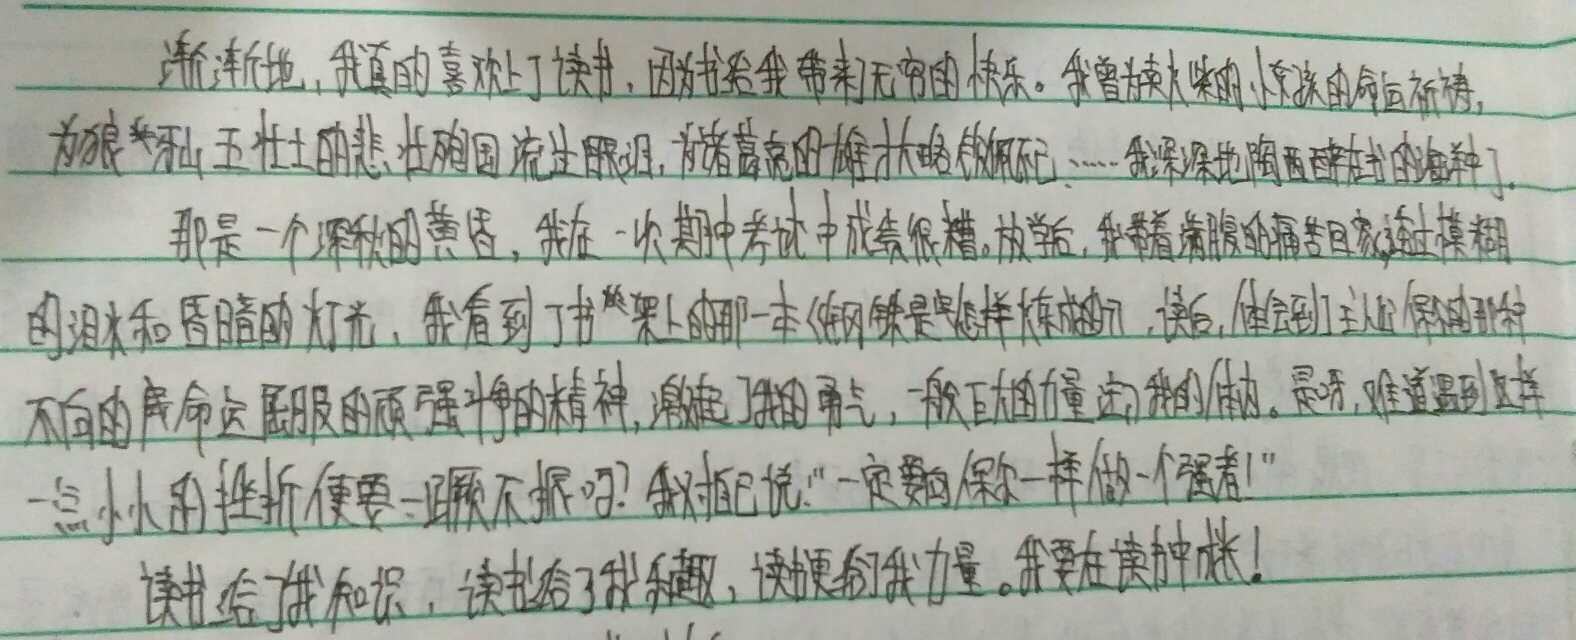 渐渐地，我真的喜欢上了读书，因为书给我带来了无穷的快乐。我曾为卖火柴的小女孩的命运祈祷，
为狼牙山五壮士的悲壮殉国流出眼泪，为诸葛亮的雄才大略钦佩不已……我深深地陶醉在书的海洋中了。
那是一个深秋的黄昏，我在一次期中考试中成绩很糟。放学后，我带着满腹的痛苦回家，透过模糊
的泪水和昏暗的灯光，我看到了书架上的那一本《钢铁是怎样炼成的》，读后，体会到了主人公保尔的那种
不向命运屈服的顽强斗争的精神，激起了我的勇气，一般巨大的力量注入我的体内。是呀，难道遇到这样
一点小小的挫折便要一蹶不振吗？我对自己说：“一定要向保尔一样做一个强者！”
读书给了我知识，读书给了我乐趣，读书更给了我力量。我要在读书中成长！